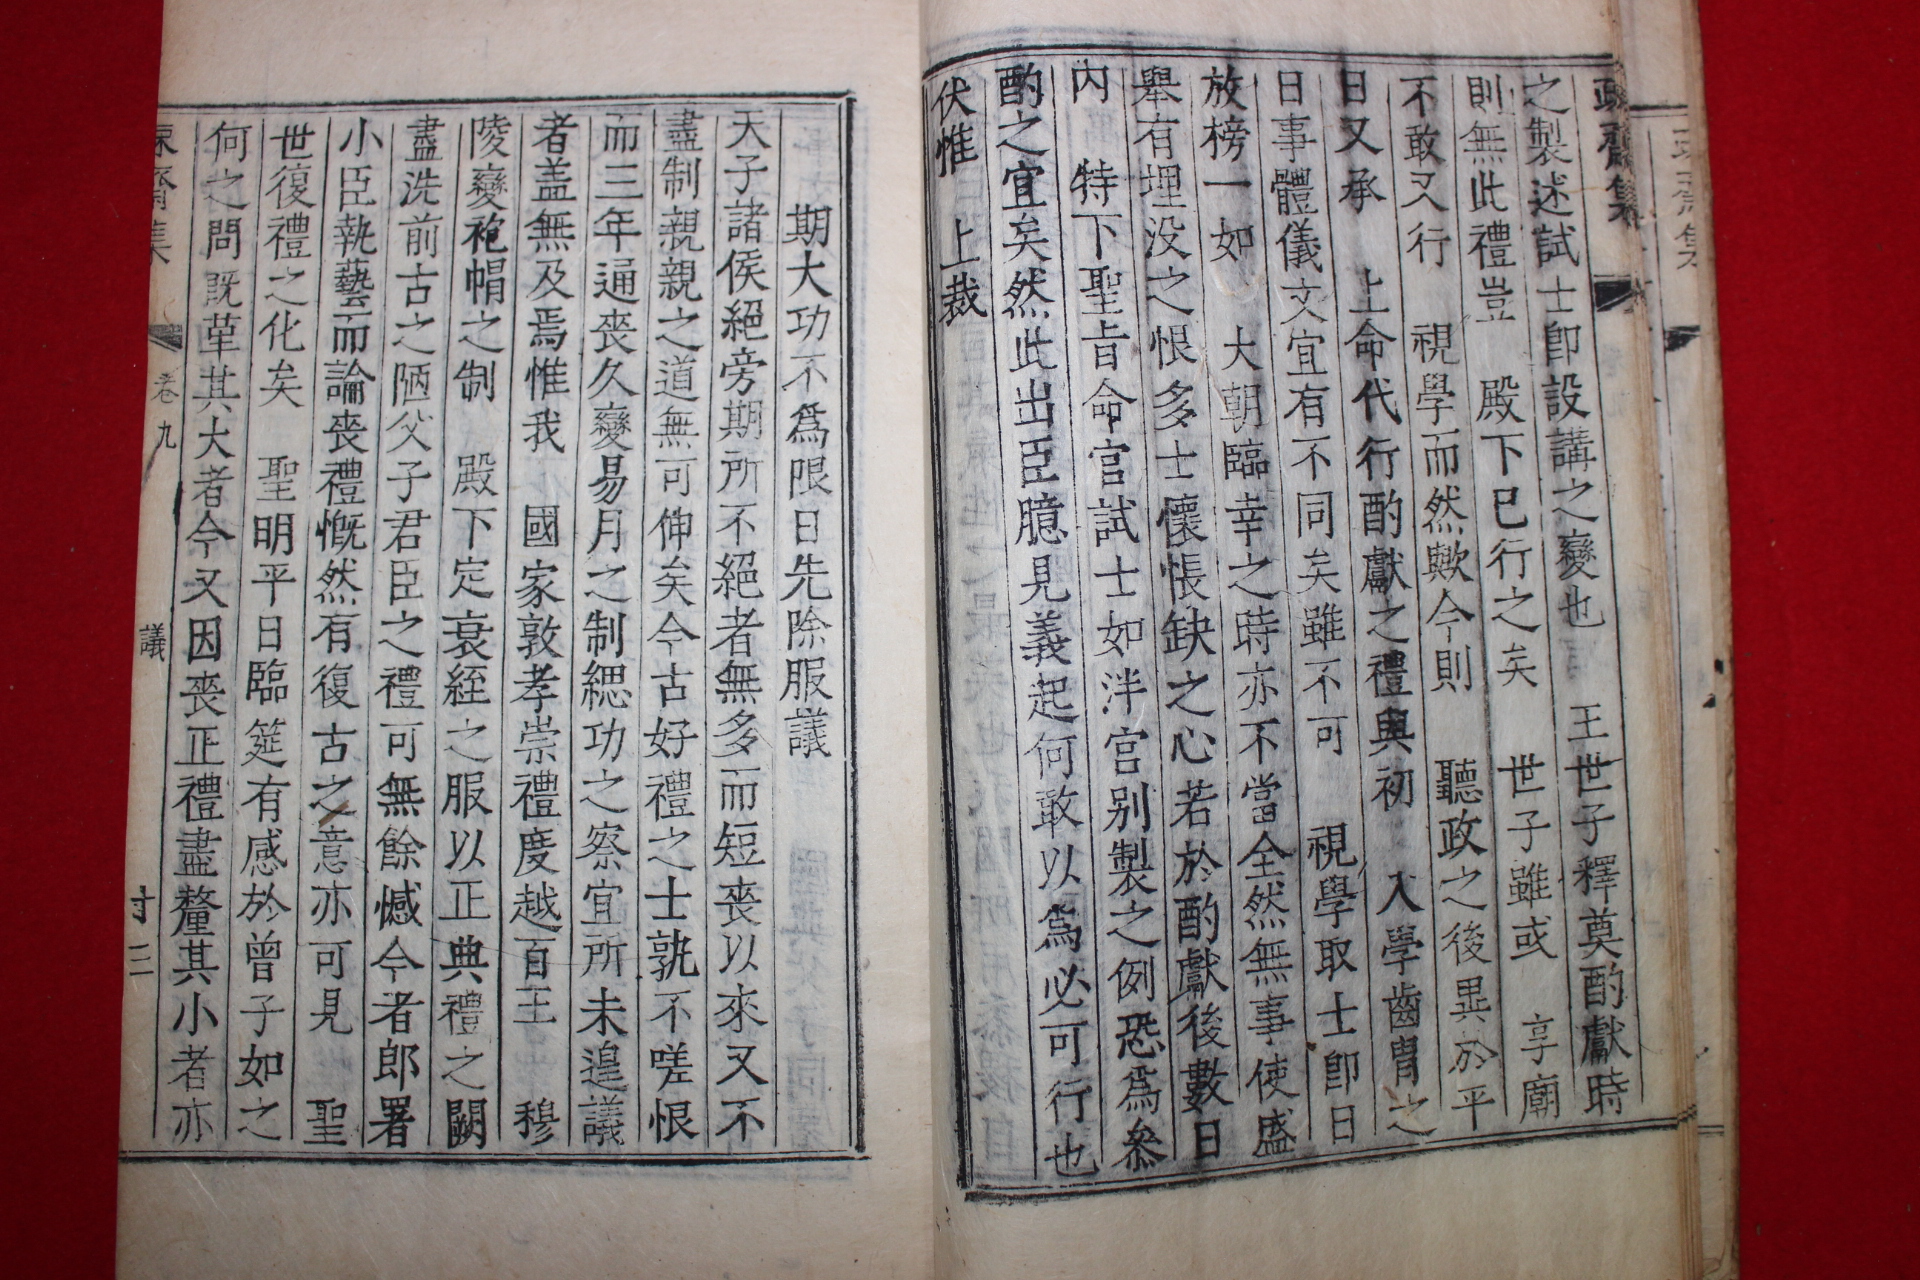 之製述試士卽設講之變也 王世子釋奠酌獻時
則無此禮豈 殿下已行之矣 世子雖或 享廟
不敢又行 視學而然歟今則 聽政之後異於平
日又承 上命代行酌獻之禮與初 入學齒胄之
日事體儀文宜有不同矣雖不可 視學取士卽日
放榜一如 大朝臨幸之時亦不當全然無事使盛
舉有埋没之恨多士懷悵缺之心若於酌獻後數日
內 特下聖旨命官試士如泮宮別製之例恐爲叅
酌之宜矣然此出臣臆見義起何敢以爲必可行也
伏惟 上裁
期大功不爲限日先除服議
天子諸侯絕旁期所不絕者無多而短喪以來又不
盡制親親之道無可伸矣今古好禮之士孰不嗟恨
而三年通喪久變易月之制緦功之察宜所未遑議
者盖無及焉惟我 國家敦孝崇禮度越百王 穆
陵變袍帽之制 殿下定衰絰之服以正典禮之闕
盡洗前古之陋父子君臣之禮可無餘憾今者郎署
小臣執藝而論喪禮慨然有復古之意亦可見 聖
世復禮之化矣 聖明平日臨筵有感於曾子如之
何之問旣革其大者今又因喪正禮盡釐其小者亦
卷九
議
廿三